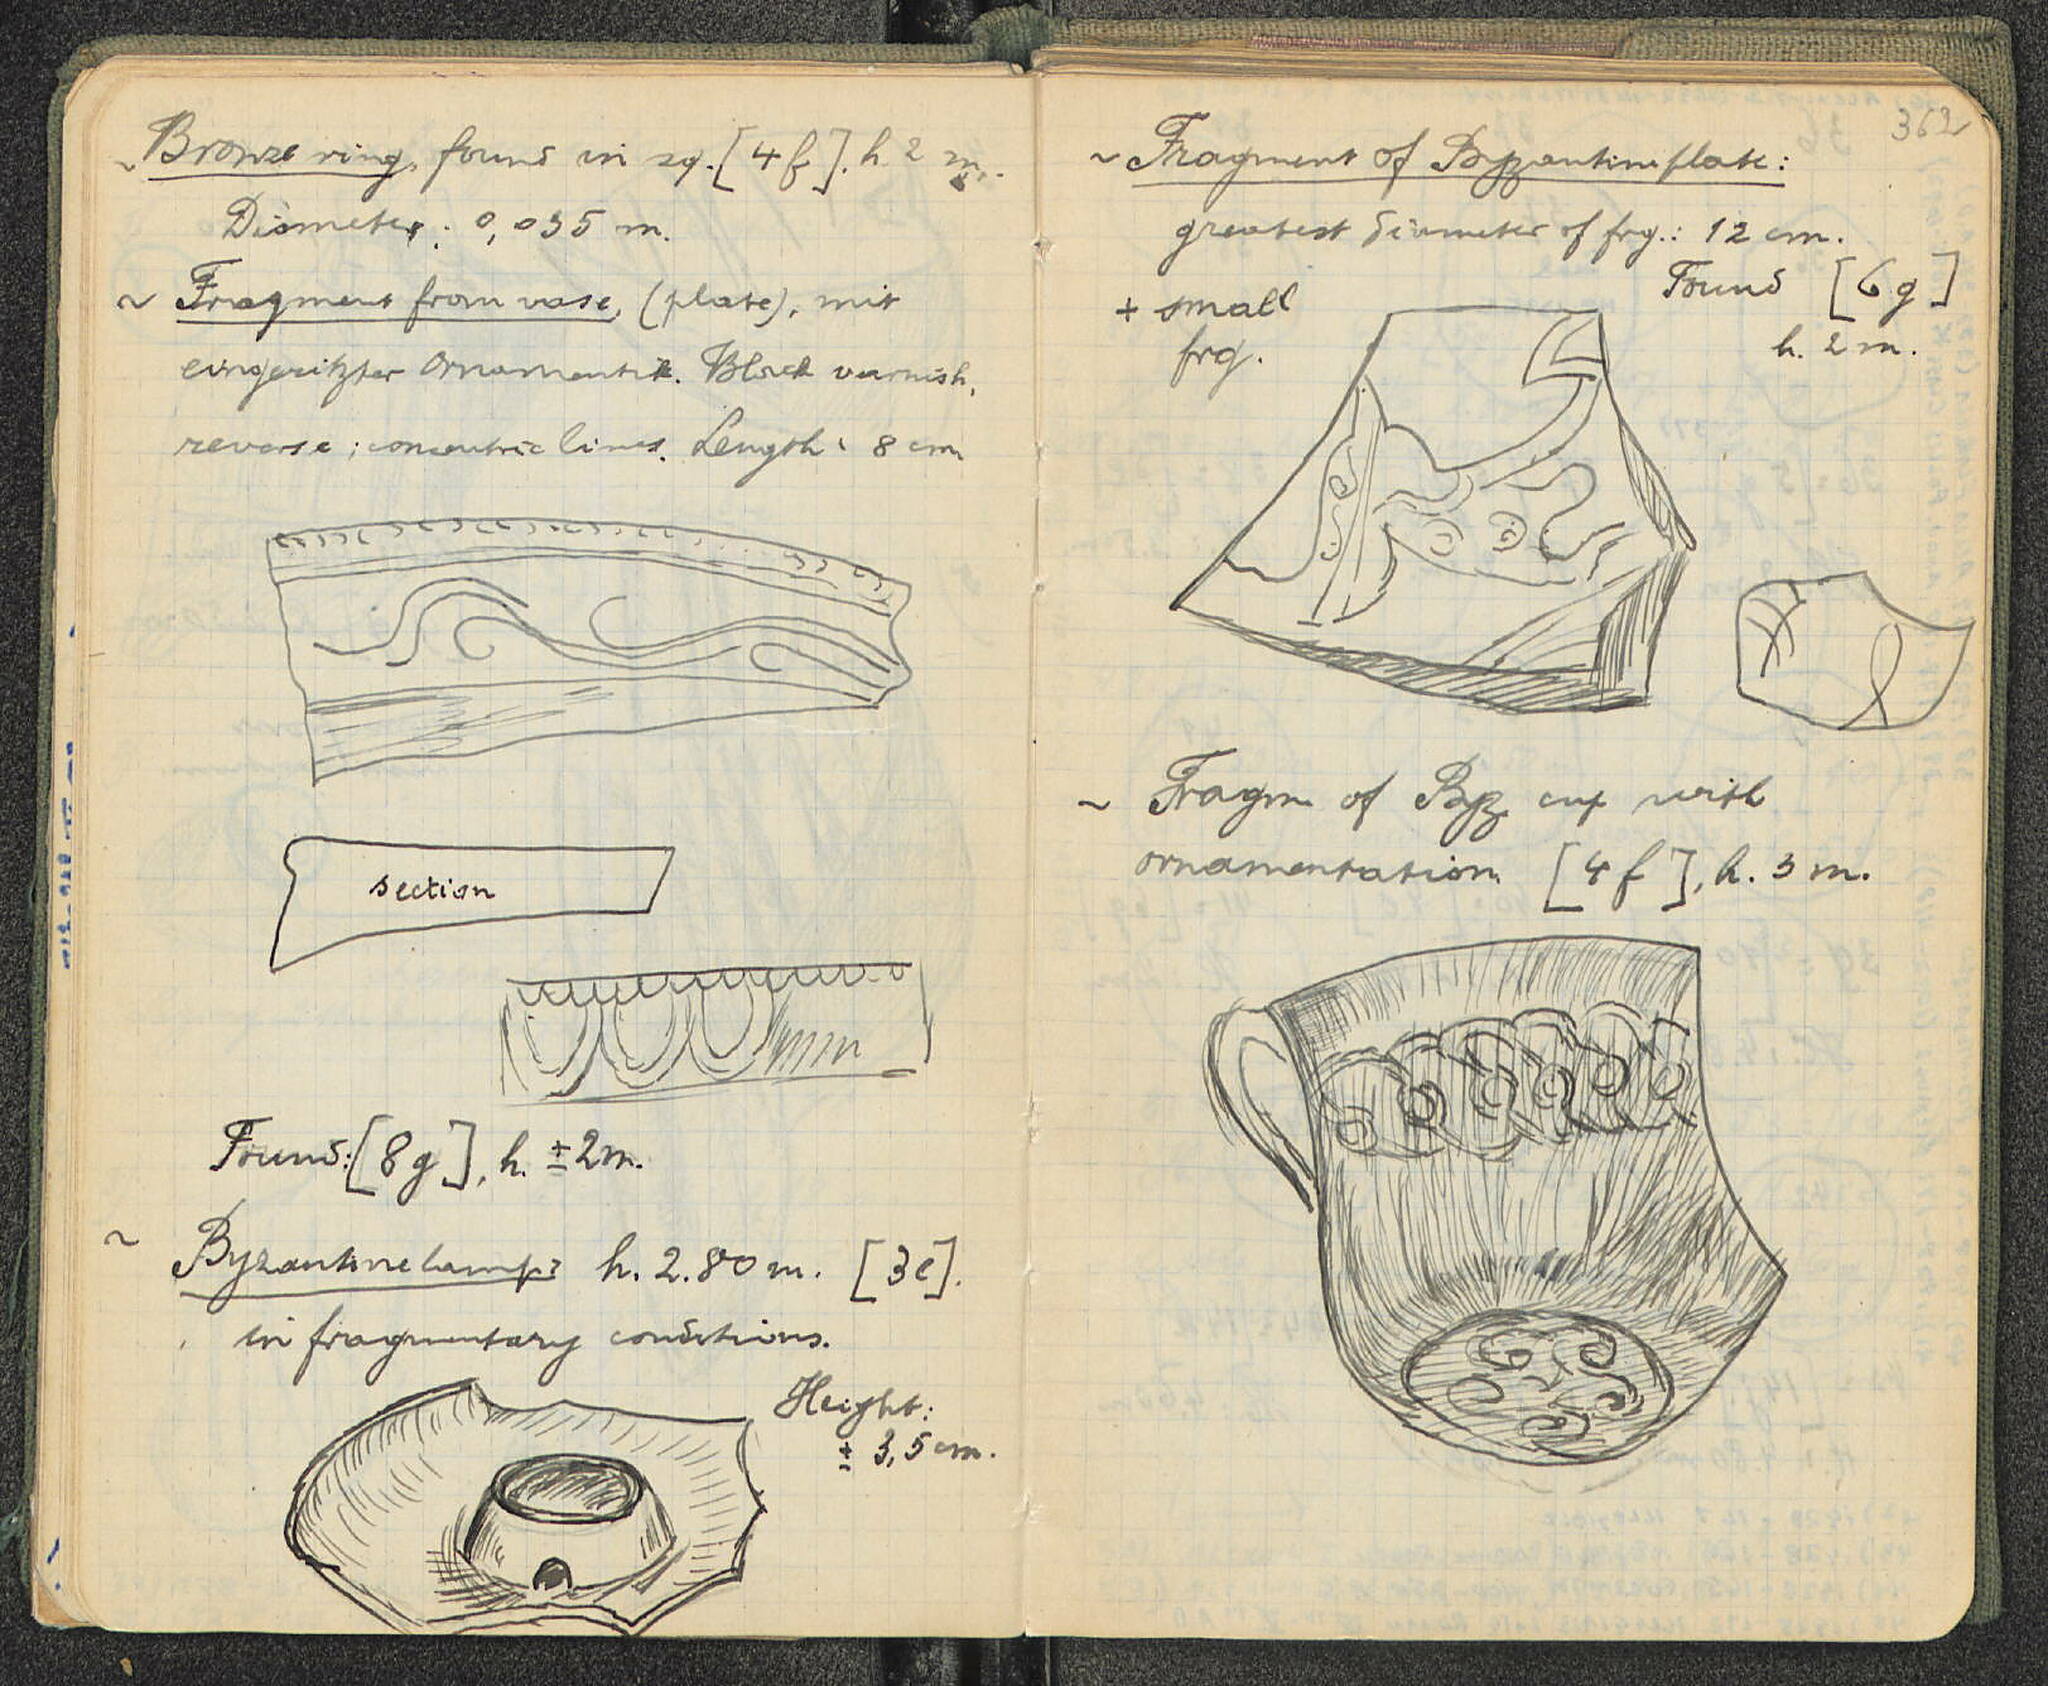 ~ Bronze ring, found in sq. [4f]. h 2 m.
Diameter: 0,035 m.
~ Fragment from vase, (plate), mit
eingeritzter Ornamentik. Black varnish,
reverse; concentric lines. Length: 8 cm
section
Found: [8g], h. ± 2m.
~ Byzantine lamp? h. 2.80 m. [3e].
in fragmentary conditions.
Height:
± 3,5 cm.
362
~ Fragment of Byzantine plate:
greatest diameter of frg.: 12 cm.
+ small
frg.
Found [6g]
h. 2 m.
~ Fragm. of Byz cup with
ornamentation. [4f], h. 3 m.